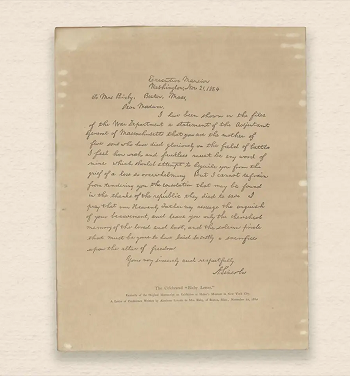 Executive Mansion
Washington, Nov. 21, 1864
To Mrs Bixby, Boston, Mass,
Dear Madam,
I have been shown in the files
of the War Department a statement of the Adjutant
General of Massachusetts that you are the mother of
five sons who have died gloriously on the field of battle
I feel how weak and fruitless must be any word of
mine which should attempt to beguile you from the
grief of a loss so overwhelming. But I cannot refrain
from tendering you the consolation that may be found
in the thanks of the republic they died to save. I
pray that our Heavenly Father may assuage the anguish
of your bereavement, and leave you only the cherished
memory of the loved and lost, and the solemn pride
that must be yours to have laid so costly a sacrifice
upon the altar of freedom
Yours very sincerely and respectfully
A. Lincoln
The Celebrated "Bixby Letter."